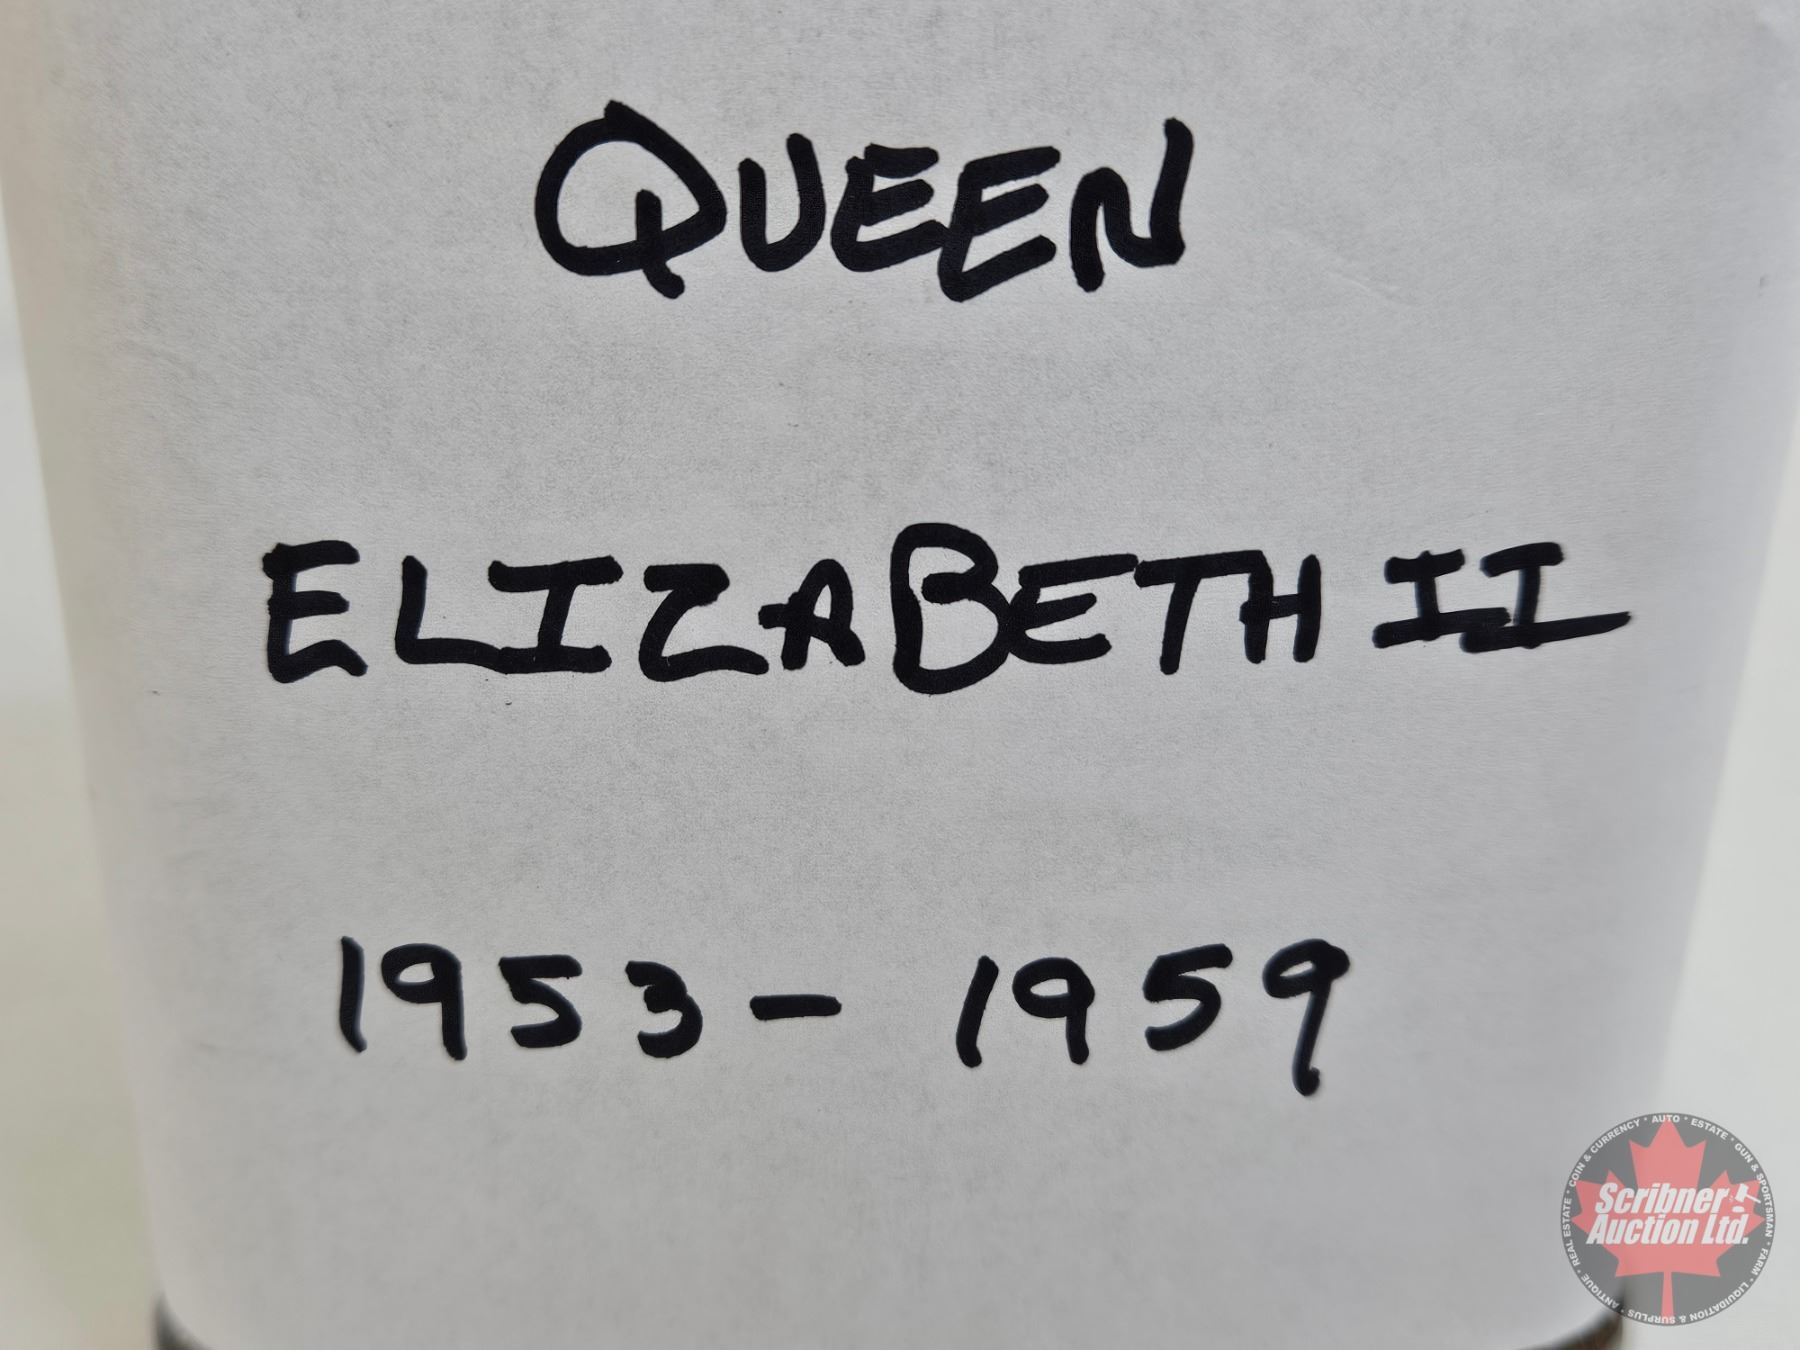 QUEEN
ELIZABETH II
1953 - 1959
COIN & CURRENCY • AUTO • ESTATE • GUN & SPORTSMAN • FARM • LIQUIDATION & SURPLUS • ANTIQUE • REAL ESTATE •
Scribner
Auction Ltd.